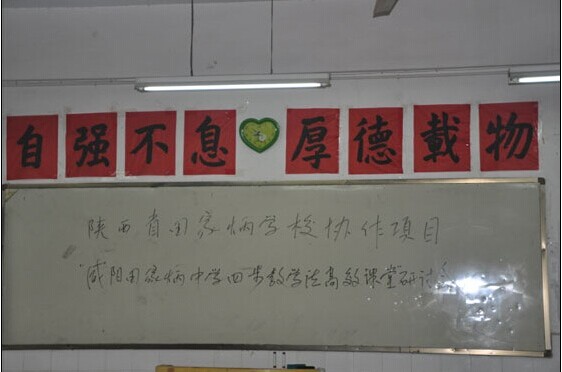 自强不息 厚德載物
陕西省田家炳学校协作项目
咸阳田家炳中学四步教学法高效课堂研讨会